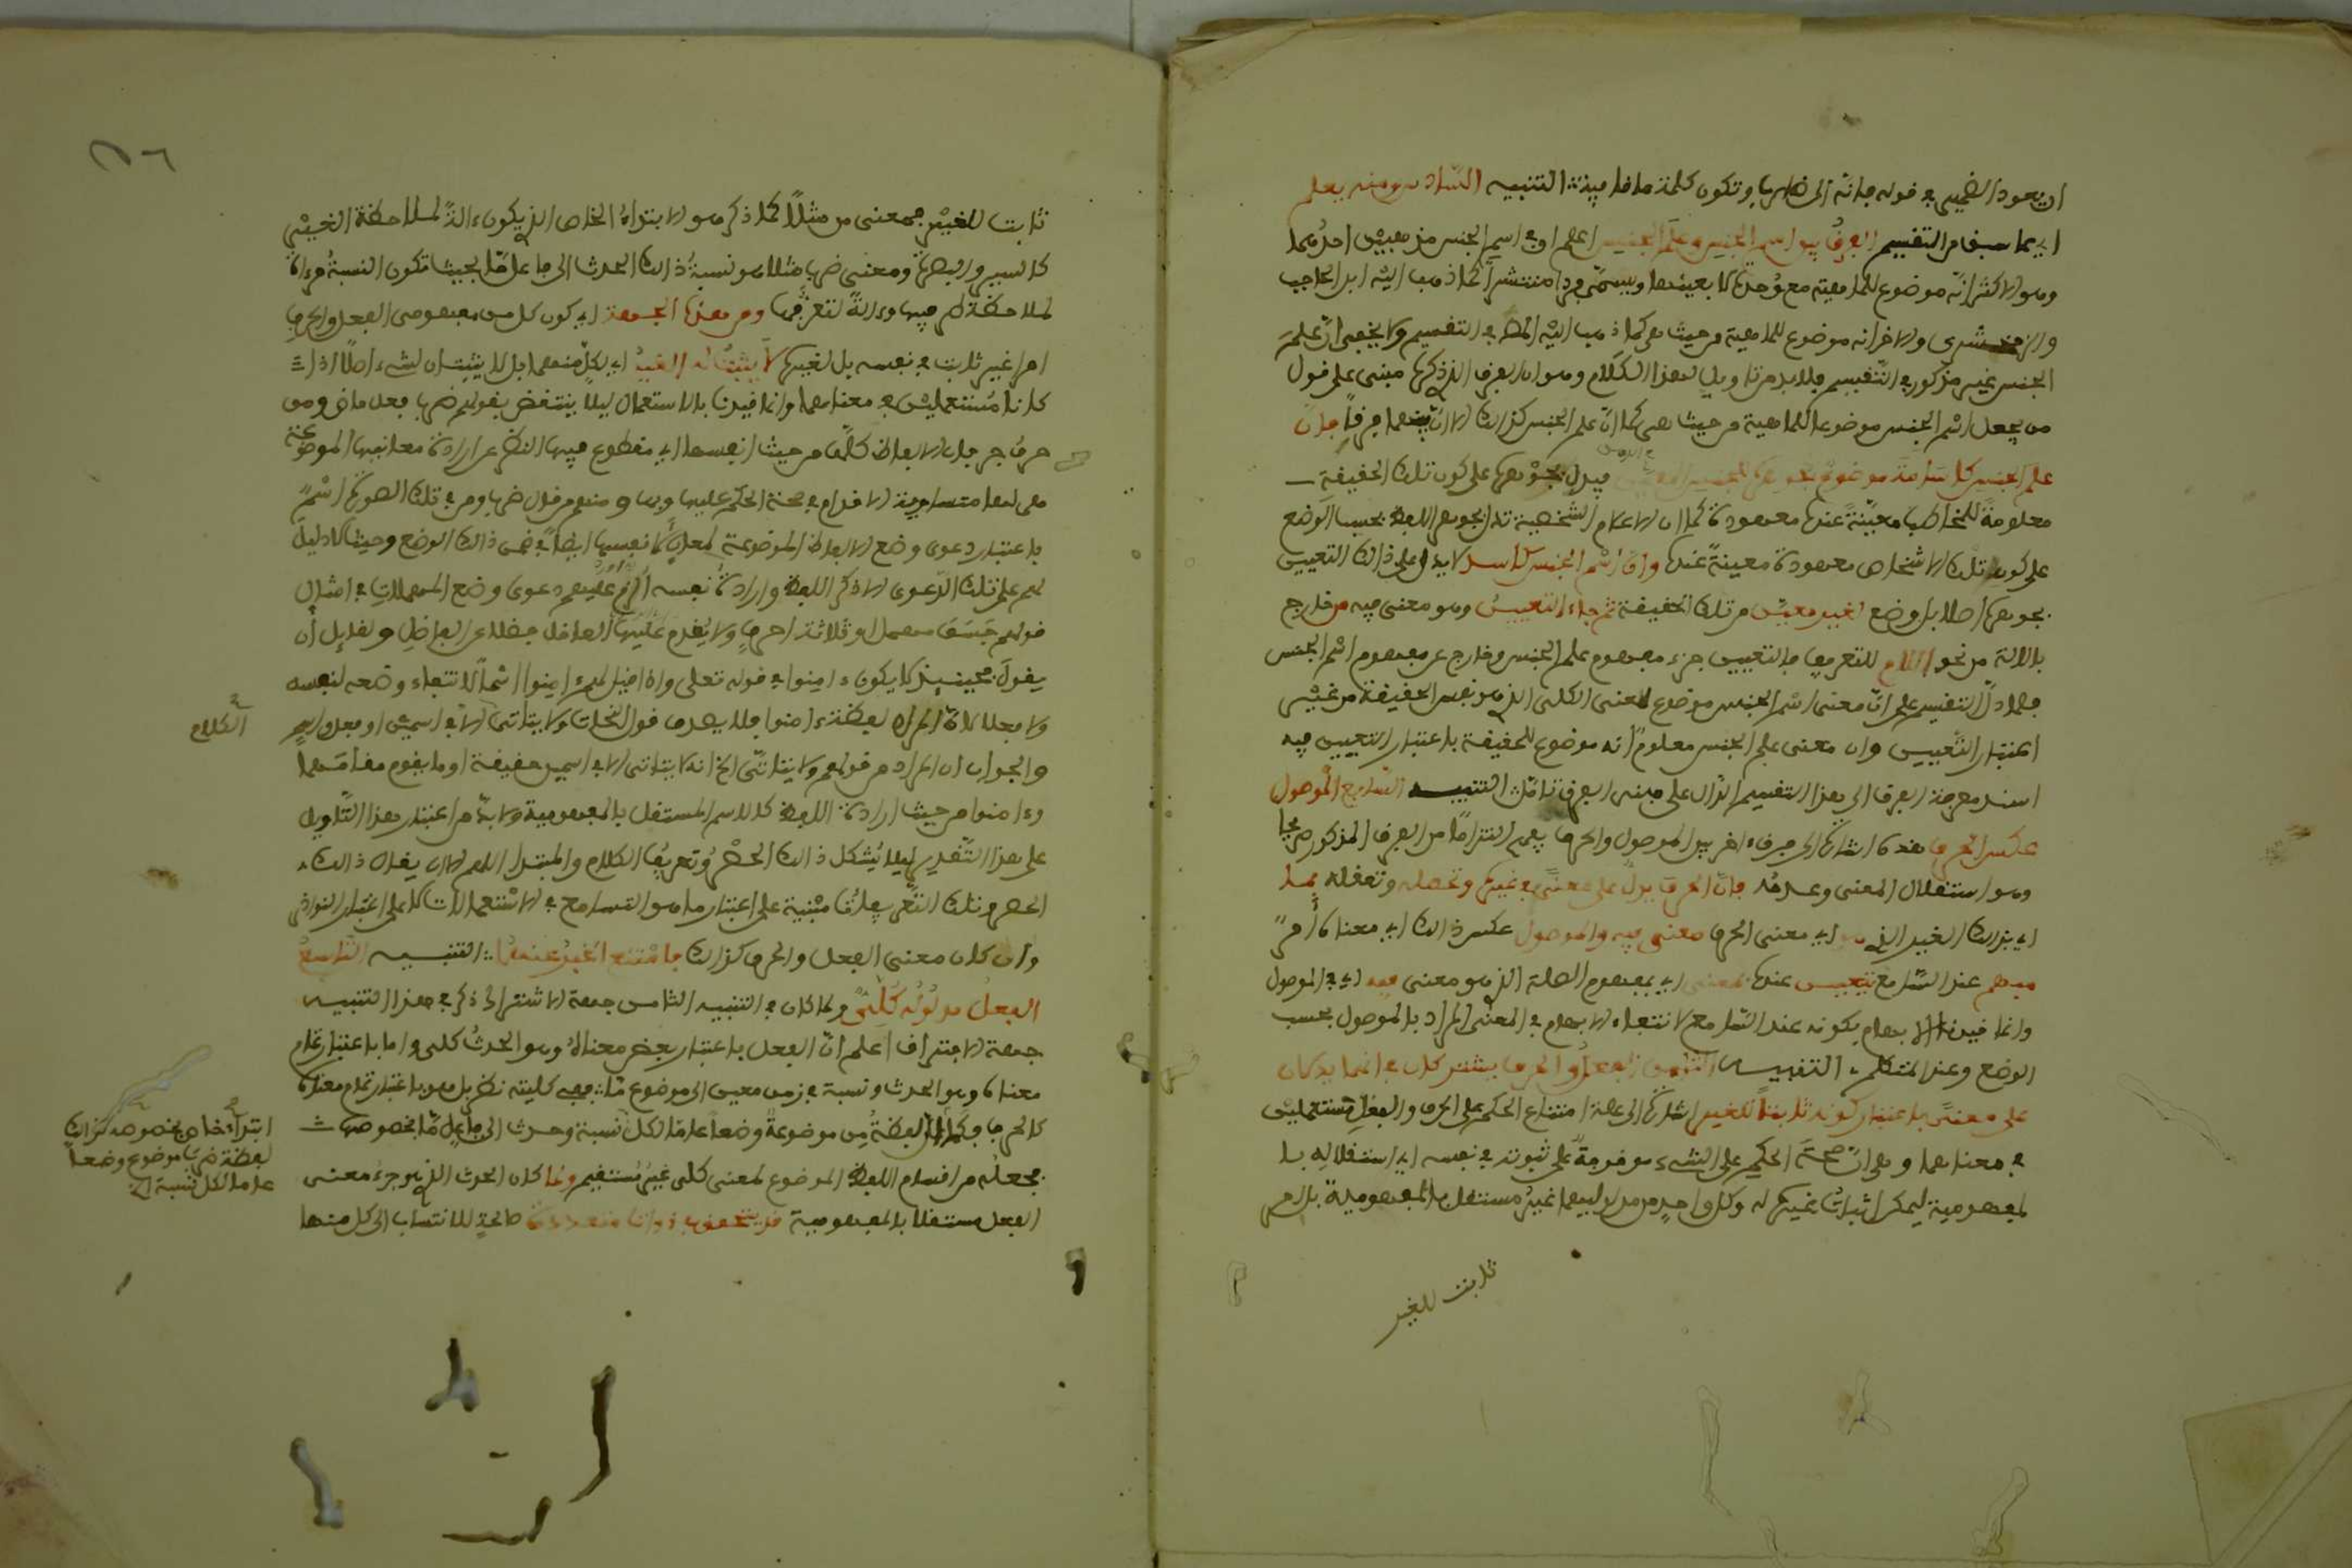 ان يعود الضمير في قوله فانه الى ظاهرها وتكون كلمة ما فا التنبيه السادس ومنه يعلم
اي مما سبق من التقسيم الفرق بين اسم الجنس وعلم الجنس اعلم ان في اسم الجنس مذهبين احدهما
وهو الاكثر انه موضوع للماهية مع وحدة لا بعينها ويسمى فردا منتشرا كما ذهب اليه ابن الحاجب
والزمخشري والاخر انه موضوع للماهية من حيث هي كما ذهب اليه المص في التقسيم ولا يخفى ان علم
الجنس غير مذكور في التقسيم فلا بد من تاويل لهذا الكلام وهو ان الفرق الذي ذكره مبني على قول
من يجعل اسم الجنس موضوعا للماهية من حيث هي كما ان علم الجنس كذلك الا ان بينهما فرقا فان
علم الجنس كاسامة موضوع بجوهره للجنس المعين فيدل بجوهره على كون تلك الحقيقة
معلومة للمخاطب معينة عنده معهودة كما ان الاعلام الشخصية تدل بجوهر اللفظ بحسب الوضع
على كون تلك الاشخاص معهودة معينة عنده وان اسم الجنس كاسد لا يدل على ذلك التعيين
بجوهره اصلا بل وضع لغير معين من تلك الحقيقة ثم جاء التعيين وهو معنى فيه من خارج
بالالة من نحو اللام للتعريف فالتعيين جزء مفهوم علم الجنس وخارج عن مفهوم اسم الجنس
فلما دل التقسيم على ان معنى اسم الجنس موضوع للمعنى الكلي الذي هو نفس الحقيقة من غير
اعتبار التعيين وان معنى علم الجنس معلوم انه موضوع للحقيقة باعتبار التعيين فيه
اسند معرفة الفرق الى هذا التقسيم الدال على مبنى الفرق تامل التنبيه السابع الموصول
عكس الحرف هذه اشارة الى فرق اخر بين الموصول والحرف يفهم التزاما من الفرق المذكور صريحا
وهو استقلال المعنى وعدمه فان الحرف يدل على معنى في غيره وتحصله وتعقله بما
اي بذلك الغير الذي هو اي معنى الحرف معنى فيه والموصول عكس ذلك اي معناه امر
مبهم عند السامع يتعين عنده بمعنى اي بمفهوم الصلة الذي هو معنى فيه اي في الموصول
وانما قيدنا الابهام بكونه عند السامع لانتفاء الابهام في المعنى المراد بالموصول بحسب
الوضع وعند المتكلم التنبيه الثامن الفعل والحرف يشتركان في انهما يدلان
على معنى باعتبار كونه ثابتا للغير اشارة الى علة امتناع الحكم على الحرف والفعل مستعملين
في معناهما وهي ان صحة الحكم على الشيء موقوفة على ثبوته في نفسه اي استقلاله با
لمفهومية ليمكن اثبات غيره له وكل واحد من مدلوليهما غير مستقل بالمفهومية بل امر
ثابت للغير
ثابت للغير فمعنى من مثلا كما ذكر هو الابتداء الخاص الذي يكون الة لملاحظة الغير
كالسير والبصرة ومعنى ضرب مثلا هو نسبة ذلك الحدث الى فاعل ما بحيث تكون النسبة مرءاة
لملاحظة طرفيها والة لتعرفها ومن هذه الجهة اي كون كل من مفهومي الفعل والحرف
امرا غير ثابت في نفسه بل لغيره لا يثبت له الغير اي لكل منهما بل لا يثبتان لشيء اصلا اذا
كانا مستعملين في معناهما وانما قيدنا بالاستعمال ليلا ينتقض بقولهم ضرب فعل ماض ومن
حرف جر فان الالفاظ كلها من حيث انفسها اي مقطوع فيها النظر عن ارادة معانيها الموضوعة
هي لها متساوية الاقدام في صحة الحكم عليها وبها ومنهم من قال ضرب ومن في تلك الصورة اسم
باعتبار دعوى وضع الالفاظ الموضوعة لمعان لانفسها ايضا في ضمن ذلك الوضع وحيث لا دليل
لهم على تلك الدعوى الا ذكر اللفظ وارادة نفسه الزم عليهم دعوى وضع المهملات في امثال
قولهم جسق مهمل او ثلاثة احرف ولا يقدم عليها العاقل فضلا عن الفاضل ولقايل ان
يقول فحينئذ لا يكون ءامنوا في قوله تعلى واذا قيل لهم ءامنوا اسما لانتفاء وضعه لنفسه
ولا فعلا لان المراد لفظة ءامنوا فلا يصدق قول النحات ولا يتاتى الا في اسمين او فعل واسم
الكلام
والجواب ان المراد من قولهم ولا يتاتى الخ انه لا يتاتى الا في اسمين حقيقة او ما يقوم مقامهما
وءامنوا من حيث ارادة اللفظ كالاسم المستقل بالمفهومية ولا بد من اعتبار هذا التاويل
على هذا التقدير ليلا يشكل ذلك الحصر وتعريف الكلام والمبتدا اللهم الا ان يقال ذلك
الحصر وتلك التعاريف مبنية على اعتبار ما هو التسامح في الاستعمالات لا على اعتبار النوادر
وان كان معنى الفعل والحرف كذلك فامتنع الخبر عنهما التنبيه التاسع
الفعل مدلوله كلي ولما كان في التنبيه الثامن جهة الاشتراك ذكر في هذا التنبيه
جهة الافتراق اعلم ان الفعل باعتبار بعض معناه وهو الحدث كلي واما باعتبار تمام
معناه وهو الحدث ونسبة في زمن معين الى موضوع ما ففي كليته نظر بل هو باعتبار تمام معناه
كالحرف فكما ان لفظة من موضوعة وضعا عاما لكل نسبة وحدث الى فاعل ما بخصوصها
ابتداء خاص بخصوصه كذلك
لفظة ضرب موضوع وضعا
عاما لكل نسبة الخ
فجعله من اقسام اللفظ الموضوع لمعنى كلي غير مستقيم ولما كان الحدث الذي هو جزء معنى
الفعل مستقلا بالمفهومية قد يتحقق في ذوات متعددة صالحة للانتساب الى كل منها